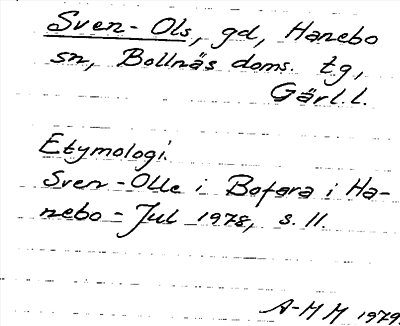 Sven-Ols, gd, Hanebo
sn, Bollnäs doms. t.g,
Gärl.l.
Etymologi.
Sven-Olle i Bofara i Ha-
nebo - Jul 1978, s. 11.
A-M M 1979.